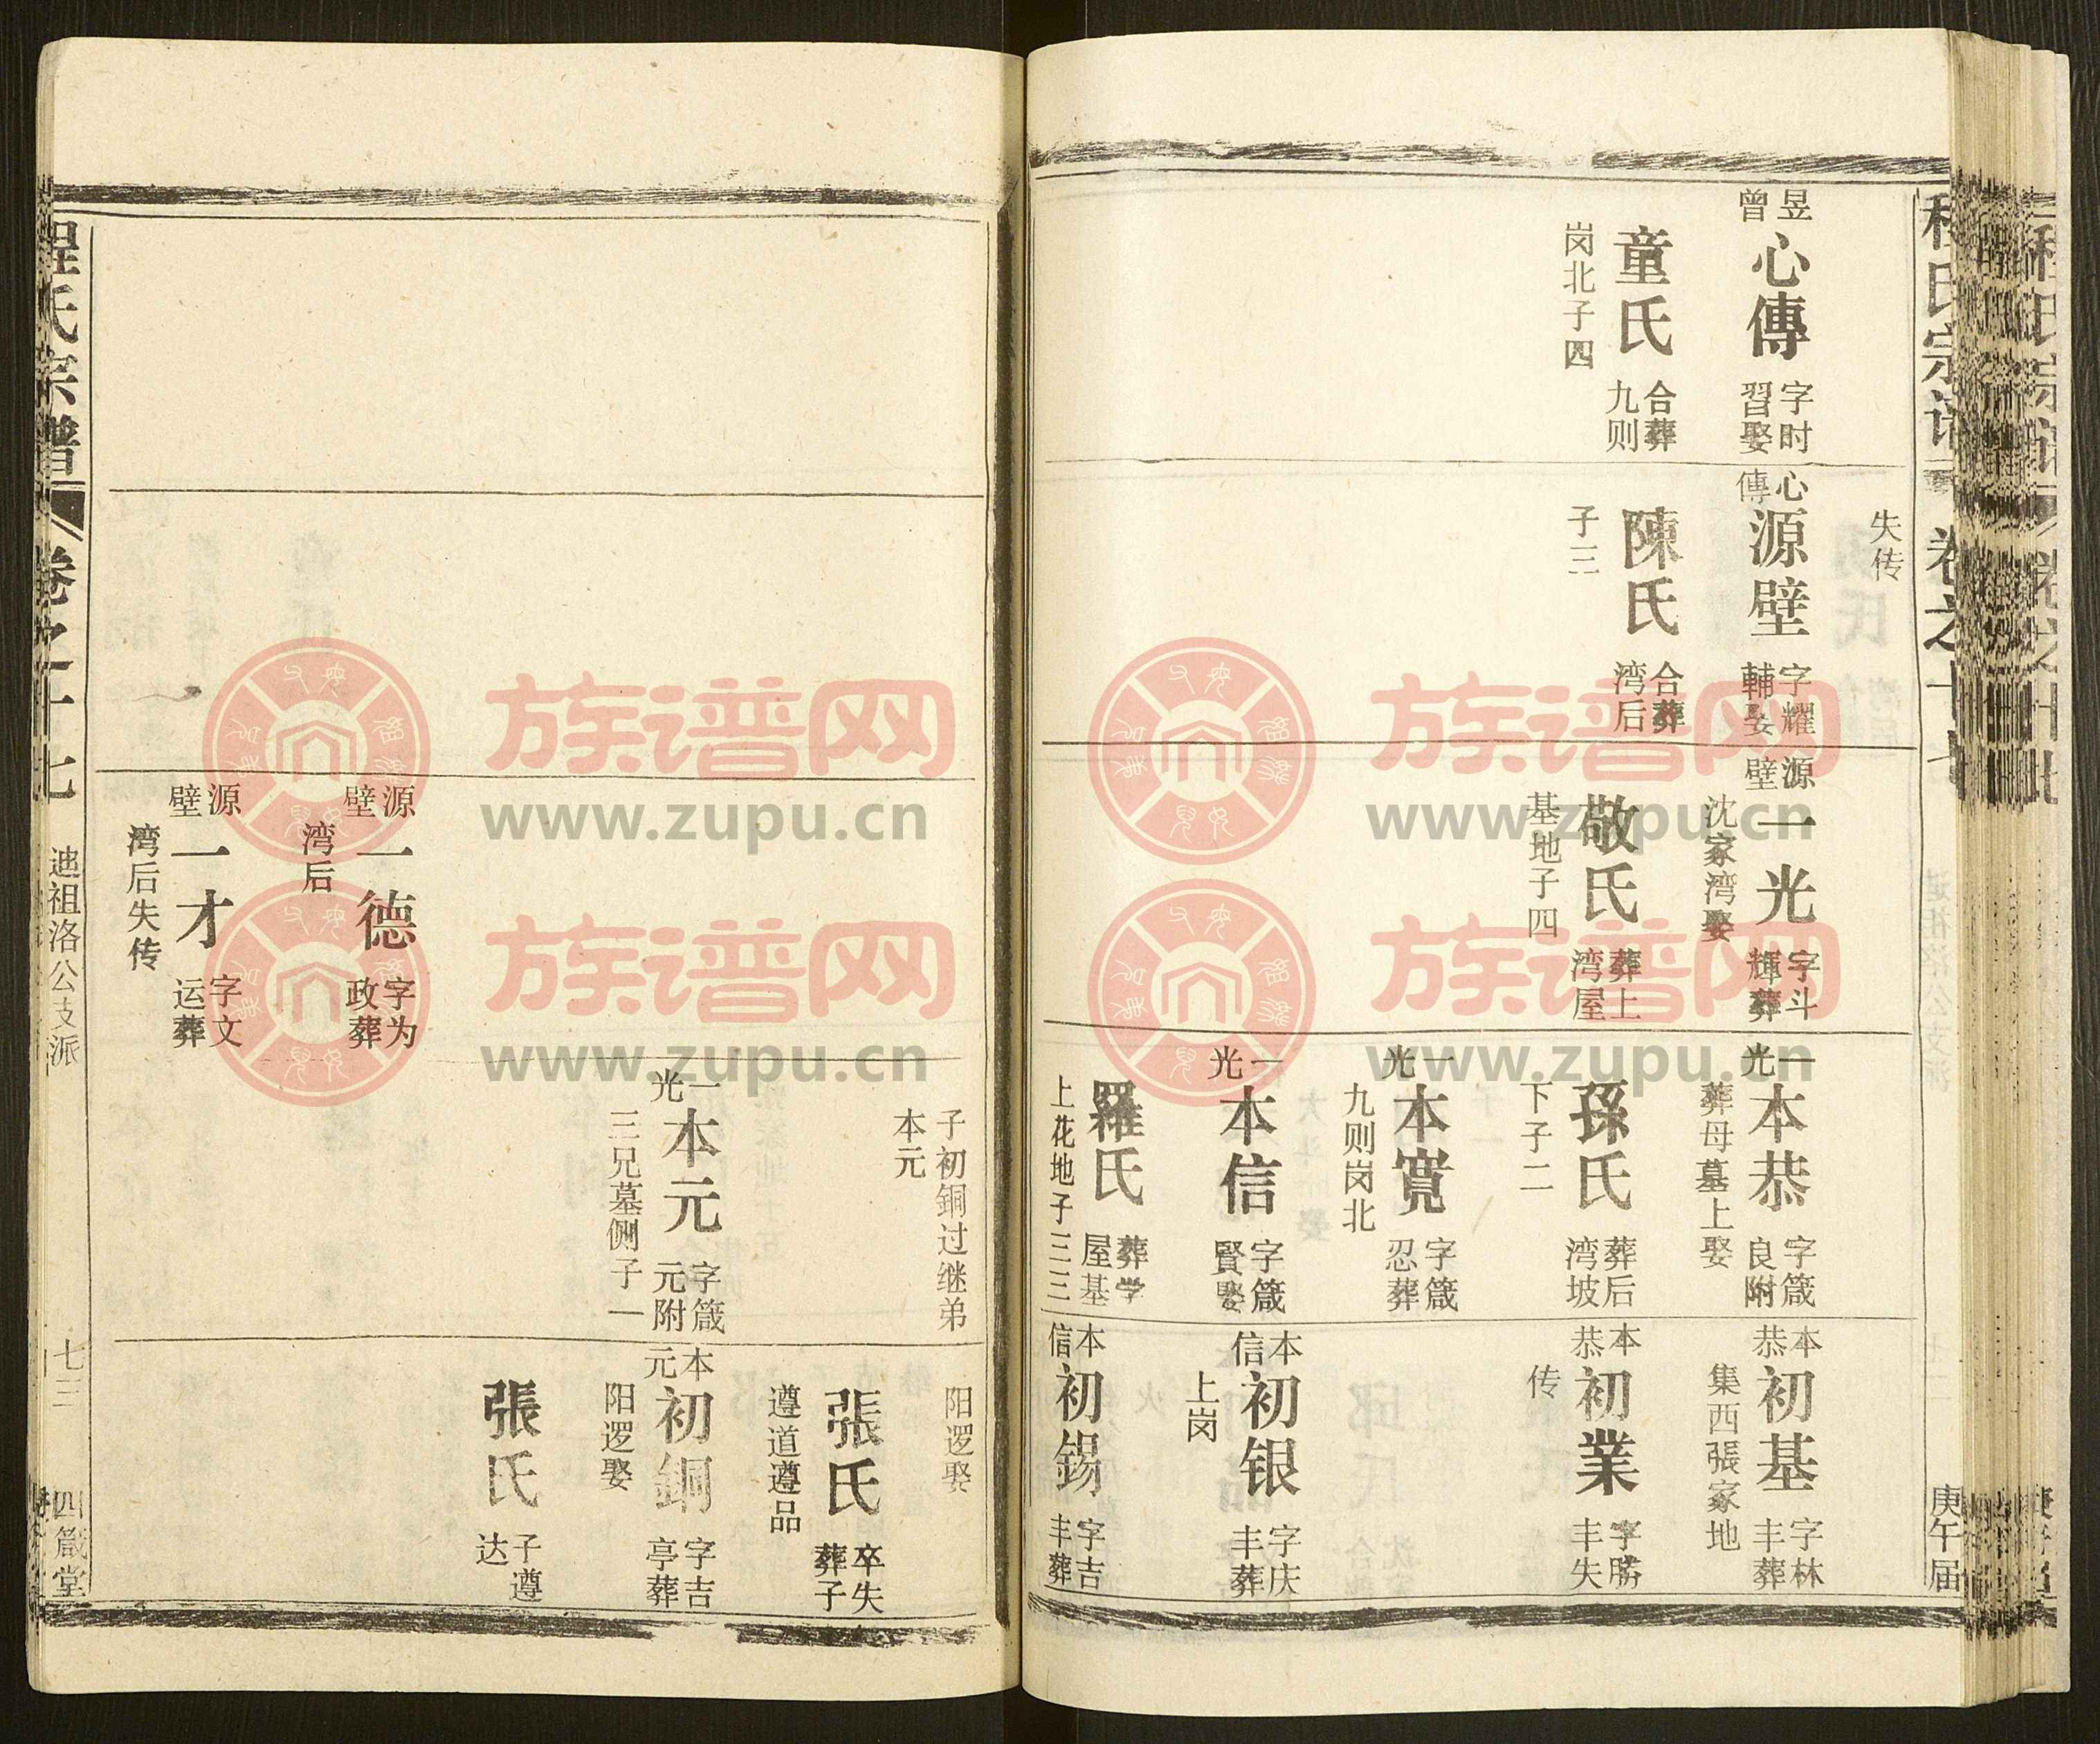 程氏宗譜
庚午届
昱曾
心傳
字时習娶
童氏
合葬九则
岗北子四
失传
心傳
源壁
字耀輔娶
陳氏
合葬湾后
子三
源壁
一光
字斗輝葬
沈家湾娶
敬氏
葬上湾屋
基地子四
一光
本恭
字箴良附
葬母墓上娶
孫氏
葬后湾坡
下子二
一光
本寬
字箴忍葬
九则岗北
一光
本信
字箴賢娶
羅氏
葬学屋基
上花地子三三
本恭
初基
字林丰葬
集西張家地
本恭
初業
字勝丰失
传
本信
初银
字庆丰葬
上岗
本信
初錫
字吉丰葬
源壁
一德
字为政葬
湾后
源壁
一才
字文运葬
湾后失传
子初銅过继弟
本元
一光
本元
字箴元附
三兄墓侧子一
阳逻娶
張氏
卒失葬子
遵道遵品
本元
初銅
字吉亭葬
阳逻娶
張氏
子遵达
程氏宗譜
卷之十七
迪祖洛公支派
七三
四箴堂
族谱网
www.zupu.cn
族谱网
www.zupu.cn
族谱网
www.zupu.cn
族谱网
www.zupu.cn